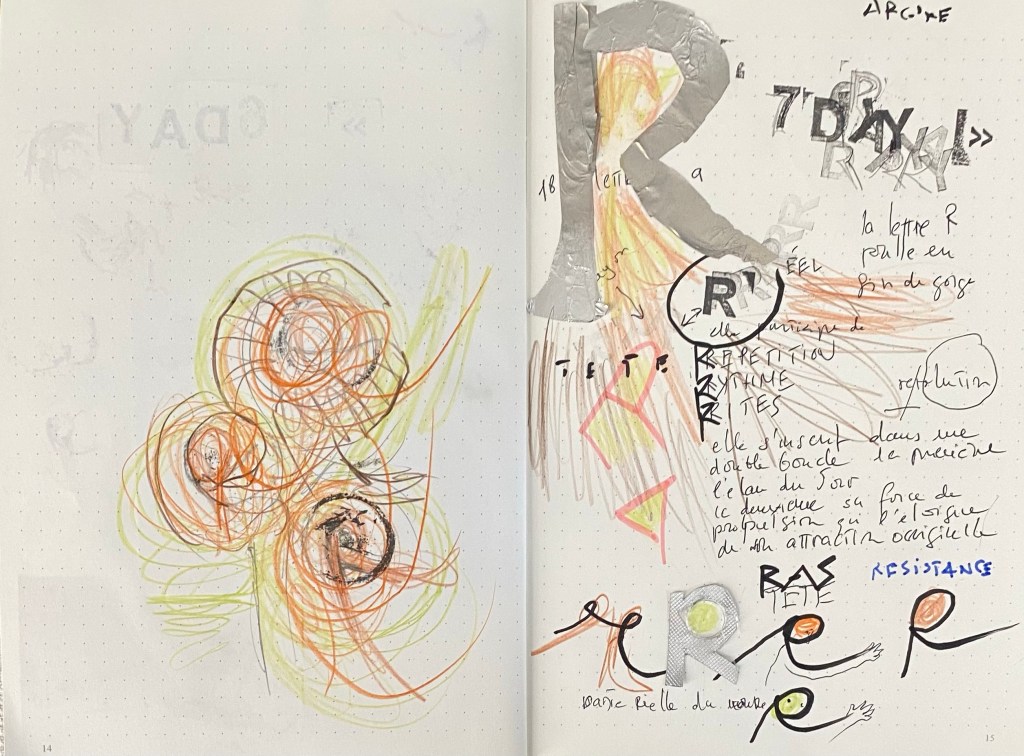 R
7 DAY
»
18
lettre
a
la lettre R
parle en
fin de gorge
R'
ÉEL
elle participe de
RÉPÉTITION
RYTHME
RITES
TETE
révolution
elle s'inscrit dans une
double boucle la première
l'élan du
la deuxième sa force de
propulsion qui l'éloigne
de son attraction originelle
BAS
TETE
RESISTANCE
R
du
14
15